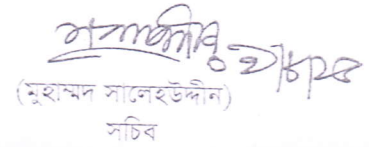 (মুহাম্মদ সালেহউদ্দীন)
সচিব